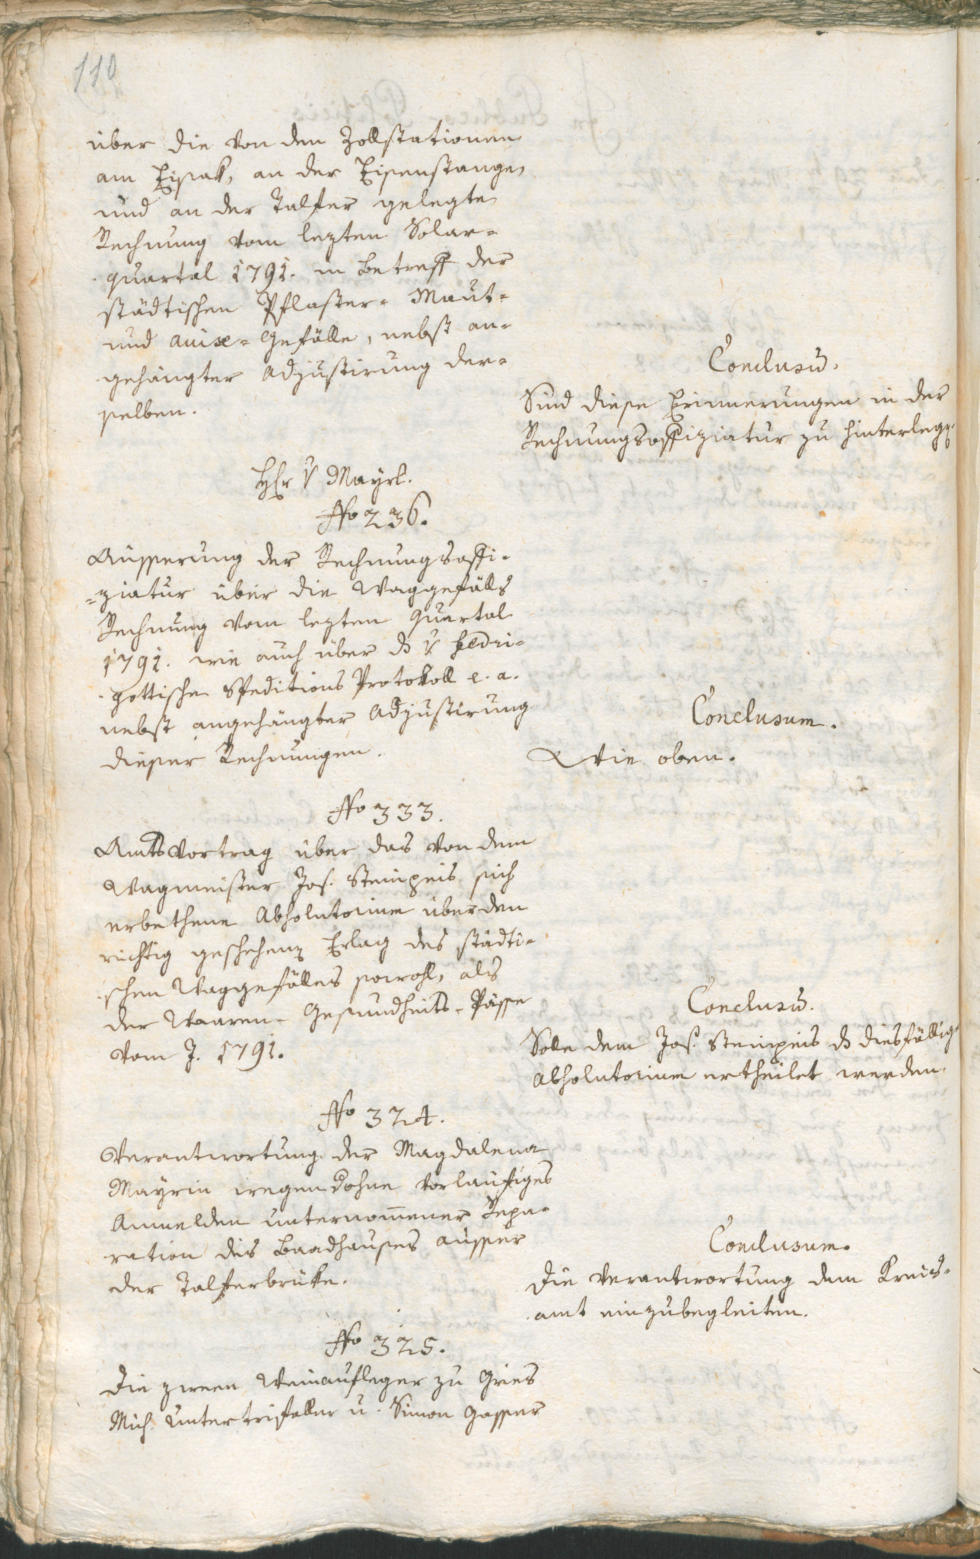 110
über die von den Zollstationen
am Eisak, an der Eisenstange,
und an der Talfer gelegte
Rechnung vom lezten Solar-
quartal 1791. in Betreff der
städtischen Pflaster- Maut-
und Avise- Gefälle, nebst an-
gehängter Adjustirung der-
selben.
Conclusũ.
Sind diese Erinnerungen in der
Rechnungsoffiziatur zu hinterlegẽ.
H̃r v Mayrl.
No 236.
Äusserung der Rechnungsoffi-
=ziatur über die Waggefälls
Rechnung vom lezten Quartal
1791. wie auch über
gottische Speditions Protokoll e. a.
nebst angehängter Adjustirung
dieser Rechnungen.
Conclusum.
Wie oben.
No 333.
Amtsvortrag über das von dem
Wagmeister Jos. Steinpeis sich
erbethene Absolutorium über den
richtig geschehenẽ Erlag des städti-
schen Waggefälles sowohl, als
der Waaren- Gesundheits- Pässe
vom J. 1791.
Conclusũ.
Solle dem Jos. Steinpeis diesfällige
Absolutorium ertheilet werden.
No 324.
Verantwortung der Magdalena
Mayrin wegen ohne vorläufiges
Anmelden unternom̅ener Repa-
ration des Baadhauses ausser
der Talferbrüke.
Conclusum.
Die Verantwortung dem Kreis-
amt einzubegleiten.
No 325.
Die zween Weinaufleger zu Gries
Mich. Untertrifaller u. Simon Gasser